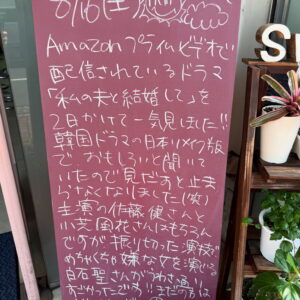 8/16(土)
Amazonプライムビデオで
配信されているドラマ
「私の夫と結婚して」を
2日かけて一気見ました!!
韓国ドラマの日本リメイク版
で おもしろいと聞いて
いたので見だすと止ま
らなくなりました(笑)
主演の佐藤健さんと
小芝風花さんはもちろん
ですが振り切った演技で
めちゃくちゃ嫌な女を演じる
白石聖さんがうわさ通り
すごかったです!!まだの方は
S